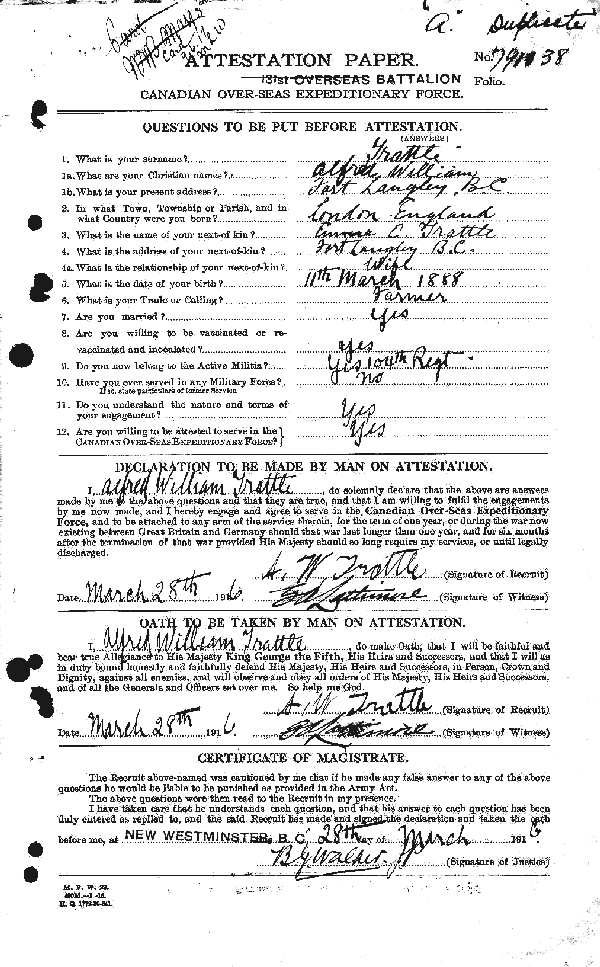 A. Duplicate
ATTESTATION PAPER. No. 790938
131st OVERSEAS BATTALION Folio.
CANADIAN OVER-SEAS EXPEDITIONARY FORCE.
QUESTIONS TO BE PUT BEFORE ATTESTATION.
(ANSWERS)
1. What is your surname? Trattle
1a. What are your Christian names? Alfred William
1b. What is your present address? Fort Langley B.C
2. In what Town, Township or Parish, and in
what Country were you born? London England
3. What is the name of your next-of kin? Emma C Trattle
4. What is the address of your next-of-kin? Fort Langley B.C.
4a. What is the relationship of your next-of-kin? Wife
5. What is the date of your birth? 11th March 1888
6. What is your Trade or Calling? Farmer
7. Are you married? Yes
8. Are you willing to be vaccinated or re-
vaccinated and inoculated? Yes
9. Do you now belong to the Active Militia? Yes 104th Regt
10. Have you ever served in any Military Force? No
If so, state particulars of former Service
11. Do you understand the nature and terms of
your engagement? Yes
12. Are you willing to be attested to serve in the
CANADIAN OVER-SEAS EXPEDITIONARY FORCE? Yes
DECLARATION TO BE MADE BY MAN ON ATTESTATION.
I, Alfred William Trattle, do solemnly declare that the above are answers
made by me to the above questions and that they are true, and that I am willing to fulfil the engagements
by me now made, and I hereby engage and agree to serve in the Canadian Over-Seas Expeditionary
Force, and to be attached to any arm of the service therein, for the term of one year, or during the war now
existing between Great Britain and Germany should that war last longer than one year, and for six months
after the termination of that war provided His Majesty should so long require my services, or until legally
discharged.
A. W Trattle (Signature of Recruit)
Date March 28th 1916 (Signature of Witness)
OATH TO BE TAKEN BY MAN ON ATTESTATION.
I, Alfred William Trattle, do make Oath, that I will be faithful and
bear true Allegiance to His Majesty King George the Fifth, His Heirs and Successors, and that I will as
in duty bound honestly and faithfully defend His Majesty, His Heirs and Successors, in Person, Crown and
Dignity, against all enemies, and will observe and obey all orders of His Majesty, His Heirs and Successors,
and of all the Generals and Officers set over me. So help me God.
A. W. Trattle (Signature of Recruit)
Date March 28th 1916. (Signature of Witness)
CERTIFICATE OF MAGISTRATE.
The Recruit above-named was cautioned by me that if he made any false answer to any of the above
questions he would be liable to be punished as provided in the Army Act.
The above questions were then read to the Recruit in my presence.
I have taken care that he understands each question, and that his answer to each question has been
duly entered as replied to, and the said Recruit has made and signed the declaration and taken the oath
before me, at NEW WESTMINSTER, B. C. 28th day of March 1916
(Signature of Justice)
M. F. W. 23.